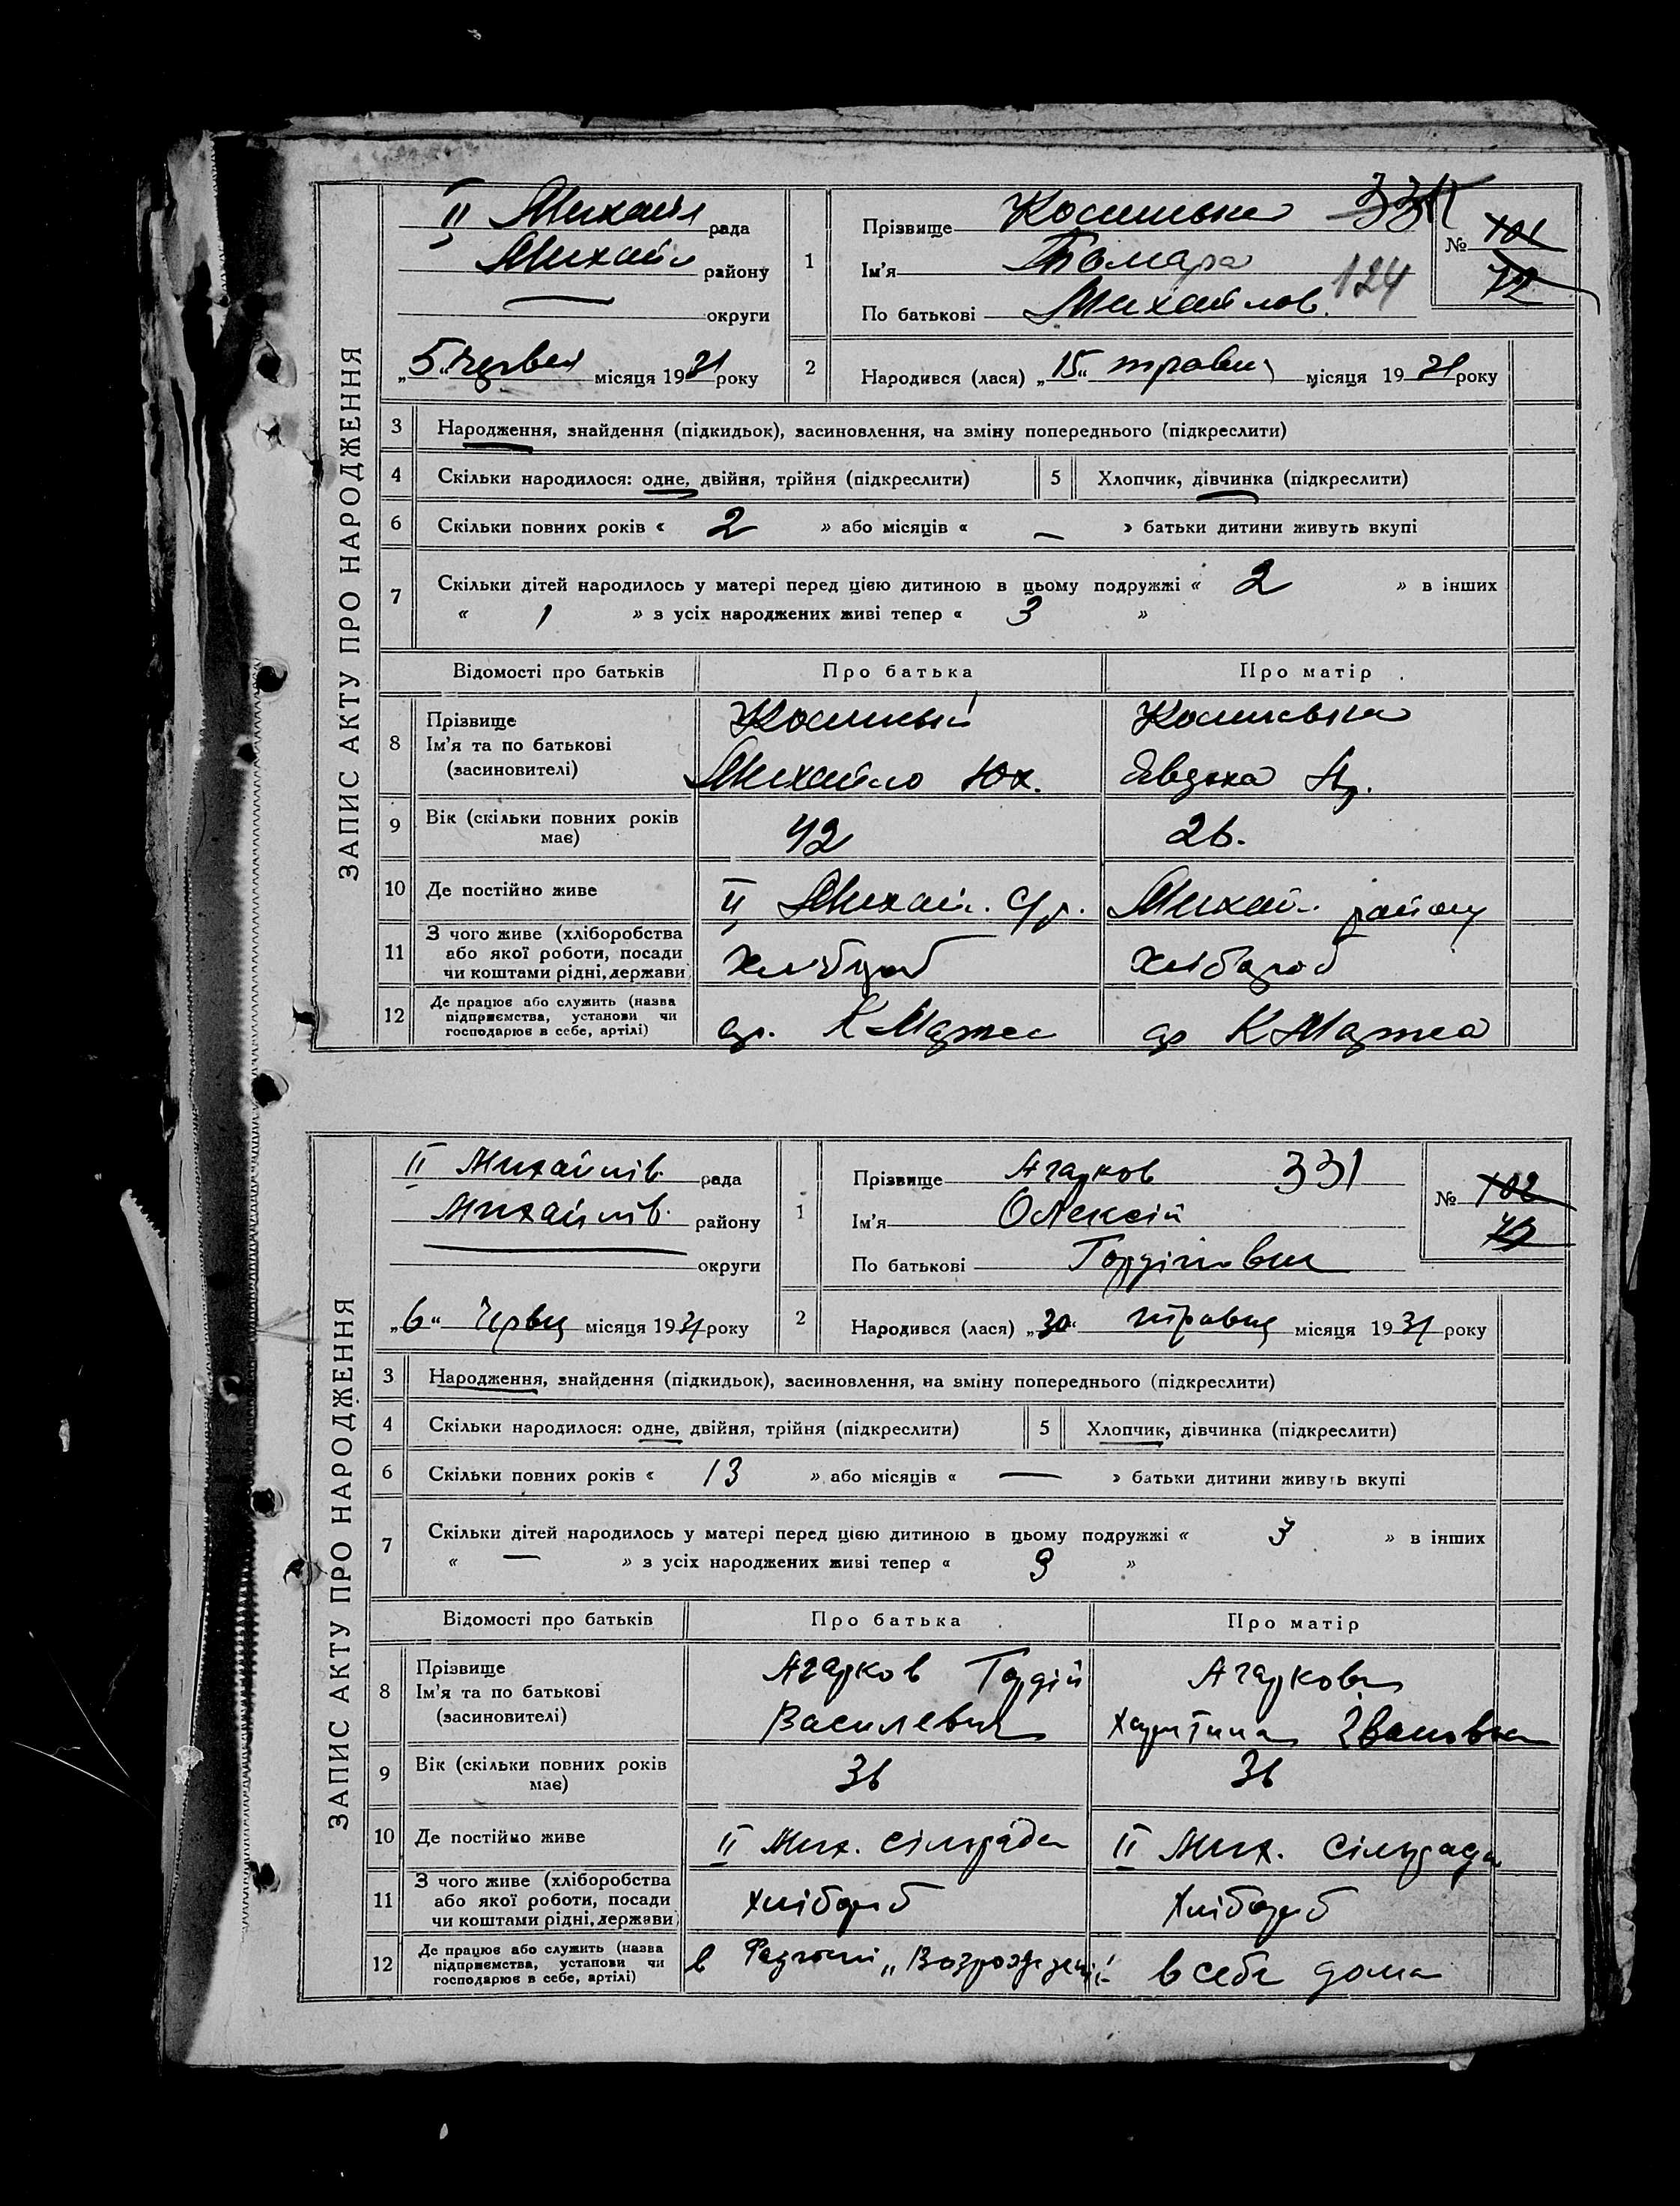 ЗАПИС АКТУ ПРО НАРОДЖЕННЯ
II Михайл рада
Михайл району
— округи
„5“ червня місяця 1931 року
1
Прізвище
Ім'я Тамара
По батькові Михайлов.
124
№ 101
72
2 Народився (лася) „15“ травня місяця 1931 року
3 Народження, знайдення (підкидьок), засиновлення, на зміну попереднього (підкреслити)
4 Скільки народилося: одне, двійня, трійня (підкреслити)
5 Хлопчик, дівчинка (підкреслити)
6 Скільки повних років « 2 » або місяців « — » батьки дитини живуть вкупі
7 Скільки дітей народилось у матері перед цією дитиною в цьому подружжі « 2 » в інших
« 1 » з усіх народжених живі тепер « 3 »
Відомості про батьків Про батька Про матір
8 Прізвище
Ім'я та по батькові
(засиновителі)
Михайло Юх.
Явдоха
9 Вік (скільки повних років
має)
42 26.
10 Де постійно живе II Михайл. с/р. Михайл. району
11 З чого живе (хліборобства
або якої роботи, посади
чи коштами рідні, держави)
Хлібороб Хлібороб
12 Де працює або служить (назва
підприємства, установи чи
господарює в себе, артілі)
ар. К Маркса ар К Маркса
ЗАПИС АКТУ ПРО НАРОДЖЕННЯ
II Михайлів. рада
Михайлів. району
— округи
„6“ Червня місяця 1931 року
1
Прізвище Агарков 331
Ім'я Олексій
По батькові Гордійович
№ 102
73
2 Народився (лася) „30“ травня місяця 1931 року
3 Народження, знайдення (підкидьок), засиновлення, на зміну попереднього (підкреслити)
4 Скільки народилося: одне, двійня, трійня (підкреслити)
5 Хлопчик, дівчинка (підкреслити)
6 Скільки повних років « 13 » або місяців « — » батьки дитини живуть вкупі
7 Скільки дітей народилось у матері перед цією дитиною в цьому подружжі « 3 » в інших
« — » з усіх народжених живі тепер « »
Відомості про батьків Про батька Про матір
8 Прізвище
Ім'я та по батькові
(засиновителі)
Агарков Гордій
Василевич
Агаркова
Харитина Івановна
9 Вік (скільки повних років
має)
36 36
10 Де постійно живе II Мих. сільрада II Мих. сільрада
11 З чого живе (хліборобства
або якої роботи, посади
чи коштами рідні, держави)
Хлібороб Хлібороб
12 Де працює або служить (назва
підприємства, установи чи
господарює в себе, артілі)
в
в себе дома